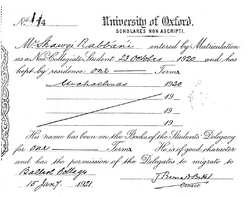 No. 1/4
University of Oxford.
SCHOLARES NON ASCRIPTI.
Mr. Shawqi Rabbani entered by Matriculation
as a Non-Collegiate Student 23 October 1920 and has
kept by residence one Terms
Michaelmas 1920
19
19
19
His name has been on the Books of the Students' Delegacy
for one Terms He is of good character
and has the permission of the Delegates to migrate to
Balliol College
15 Jany. 1921
Censor